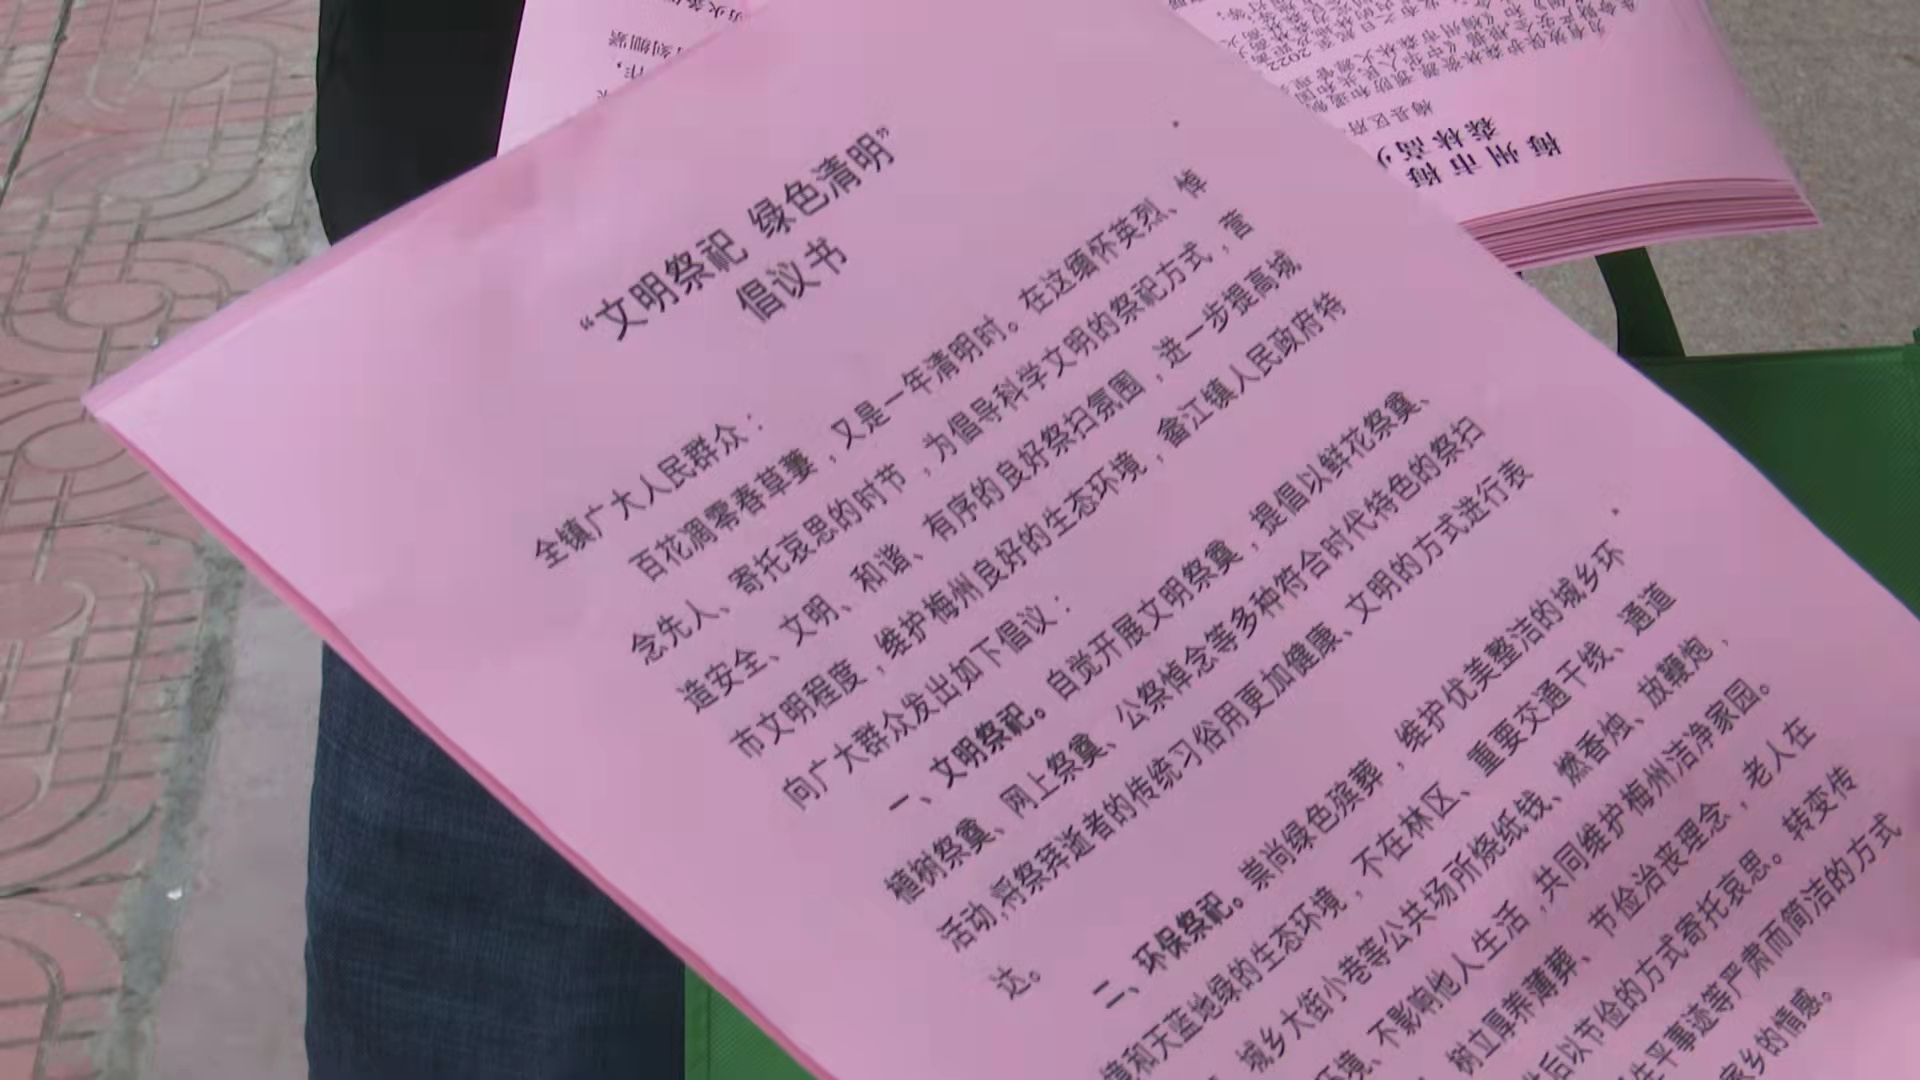 “文明祭祀 绿色清明”
倡议书
全镇广大人民群众：
百花凋零春草萋，又是一年清明时。在这缅怀英烈、悼
念先人、寄托哀思的时节，为倡导科学文明的祭祀方式，营
造安全、文明、和谐、有序的良好祭扫氛围，进一步提高城
市文明程度，维护梅州良好的生态环境，畲江镇人民政府特
向广大群众发出如下倡议：
一、文明祭祀。自觉开展文明祭奠，提倡以鲜花祭奠、
植树祭奠、网上祭奠、公祭悼念等多种符合时代特色的祭扫
活动,将祭拜逝者的传统习俗用更加健康、文明的方式进行表
达。
二、环保祭祀。崇尚绿色殡葬，维护优美整洁的城乡环
境和天蓝地绿的生态环境，不在林区、重要交通干线、通道
、城乡大街小巷等公共场所烧纸钱、燃香烛、放鞭炮，
环境、不影响他人生活,共同维护梅州洁净家园。
树立厚养薄葬、节俭治丧理念，老人在
后以节俭的方式寄托哀思。转变传
生平事迹等严肃而简洁的方式
家乡的情感。
梅州市梅
森林高火
梅县区府